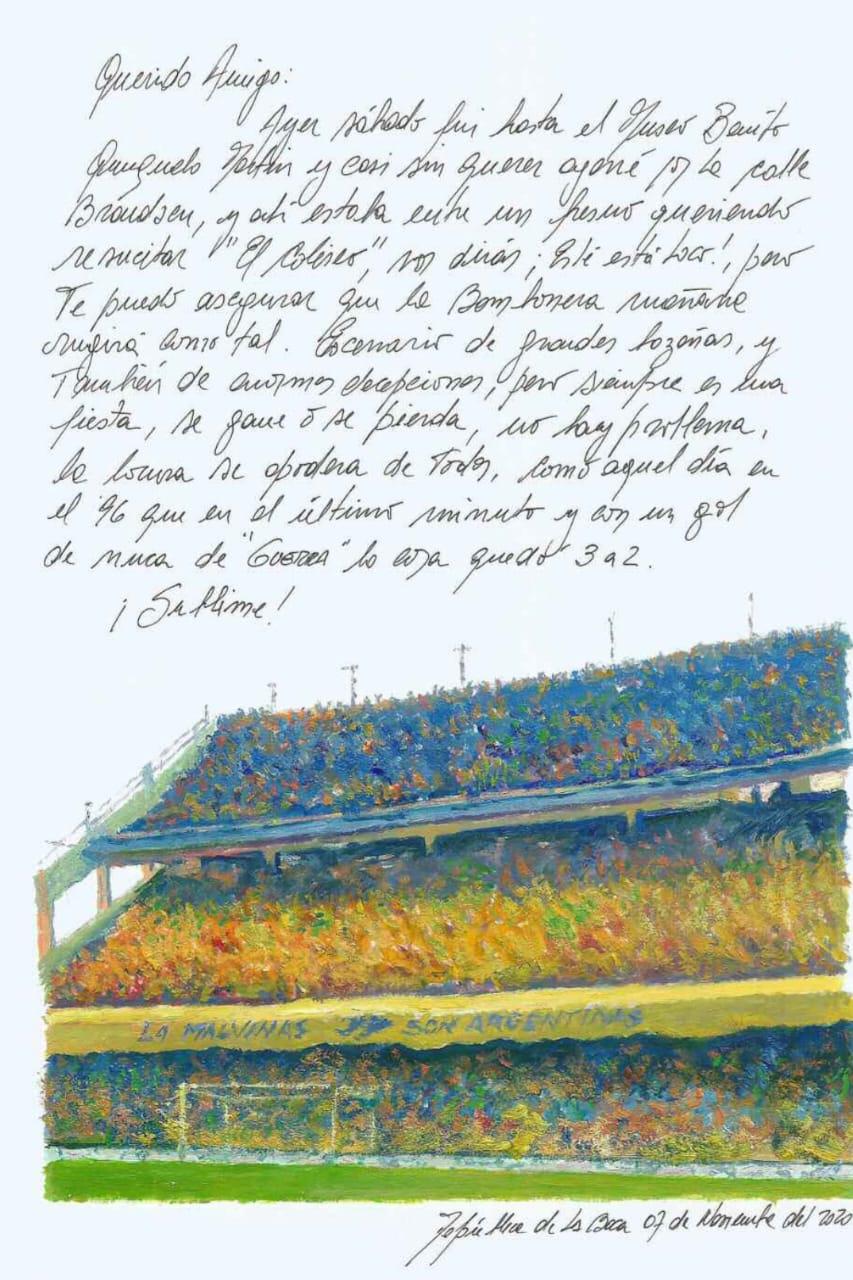 Querido Amigo:
Ayer sábado fui hasta el Museo Benito
Quinquela Martin y casi sin querer agarré por la calle
Brandsen, y ahí estaba entre un fresno queriendo
resucitar "El Coliseo", vos dirás ¡Este está loco!, pero
Te puedo asegurar que la Bombonera mañana
rugirá como tal. Escenario de grandes hazañas, y
También de enormes decepciones, pero siempre es una
fiesta, se gane ó se pierda, no hay problema,
la locura se apodera de Todos, como aquel día en
el 96 que en el último minuto y con un gol
de nuca de "Guerra" la cosa quedó 3 a 2.
¡Sublime!
LA MALVINAS SON ARGENTINAS
República de La Boca 07 de Noviembre del 2020